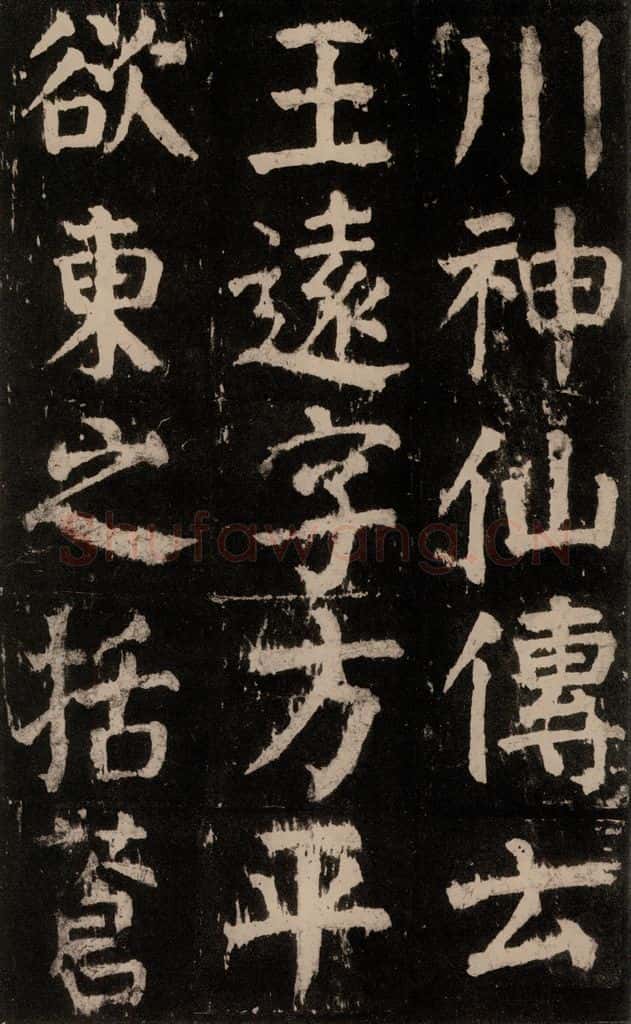 川神仙傳云
王遠字方平
欲東之括蒼
Shufawang.CN